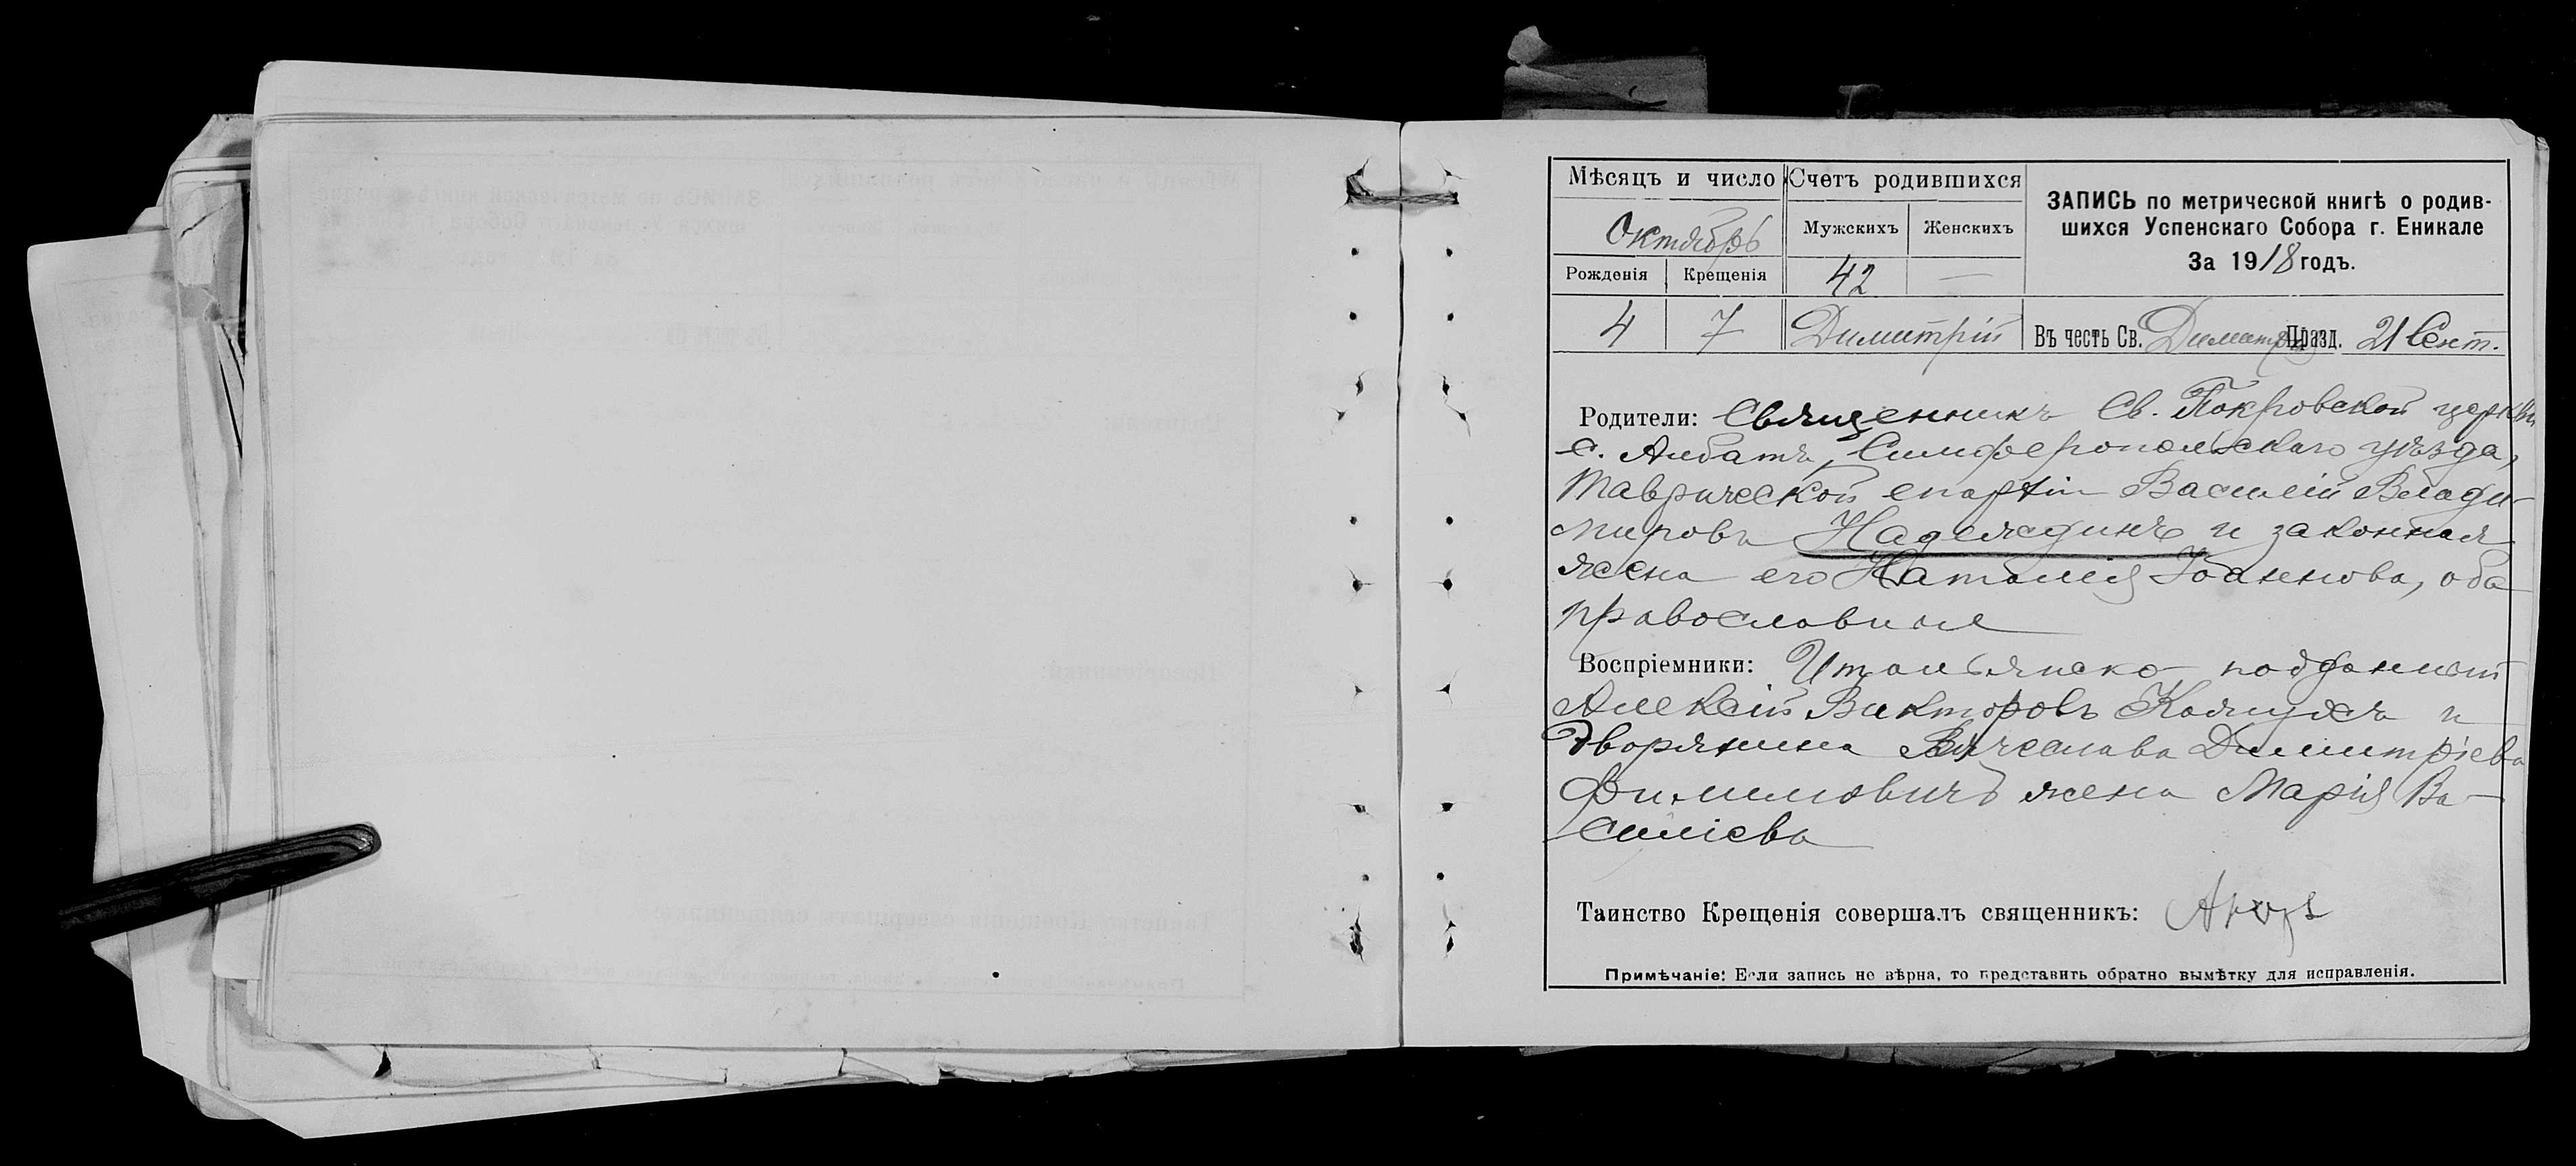 Мѣсяцъ и число
Счетъ родившихся
ЗАПИСЬ по метрической книгѣ о родив-
шихся Успенскаго Собора г. Еникале
За 1918 годъ.
Октябрь
Мужскихъ
Женскихъ
Рожденія
Крещенія
42
—
4
7
Димитрій
Въ честь Св. Димитрія Празд. 21 Сент.
Родители: Священникъ Св. Покровской церкви
с. Албатъ, Симферопольскаго уѣзда,
Таврической епархіи Василій Влади-
мировъ Надеждинъ и законная
жена его Наталія Іоаннова, оба
православные
Воспріемники: Итальянско-подданный
Алексій Викторовъ и
дворянина Вячеслава Димитріева
жена Марія Ва-
силіева
Таинство Крещенія совершалъ священникъ:
Примѣчаніе: Если запись не вѣрна, то представить обратно вымѣтку для исправленія.